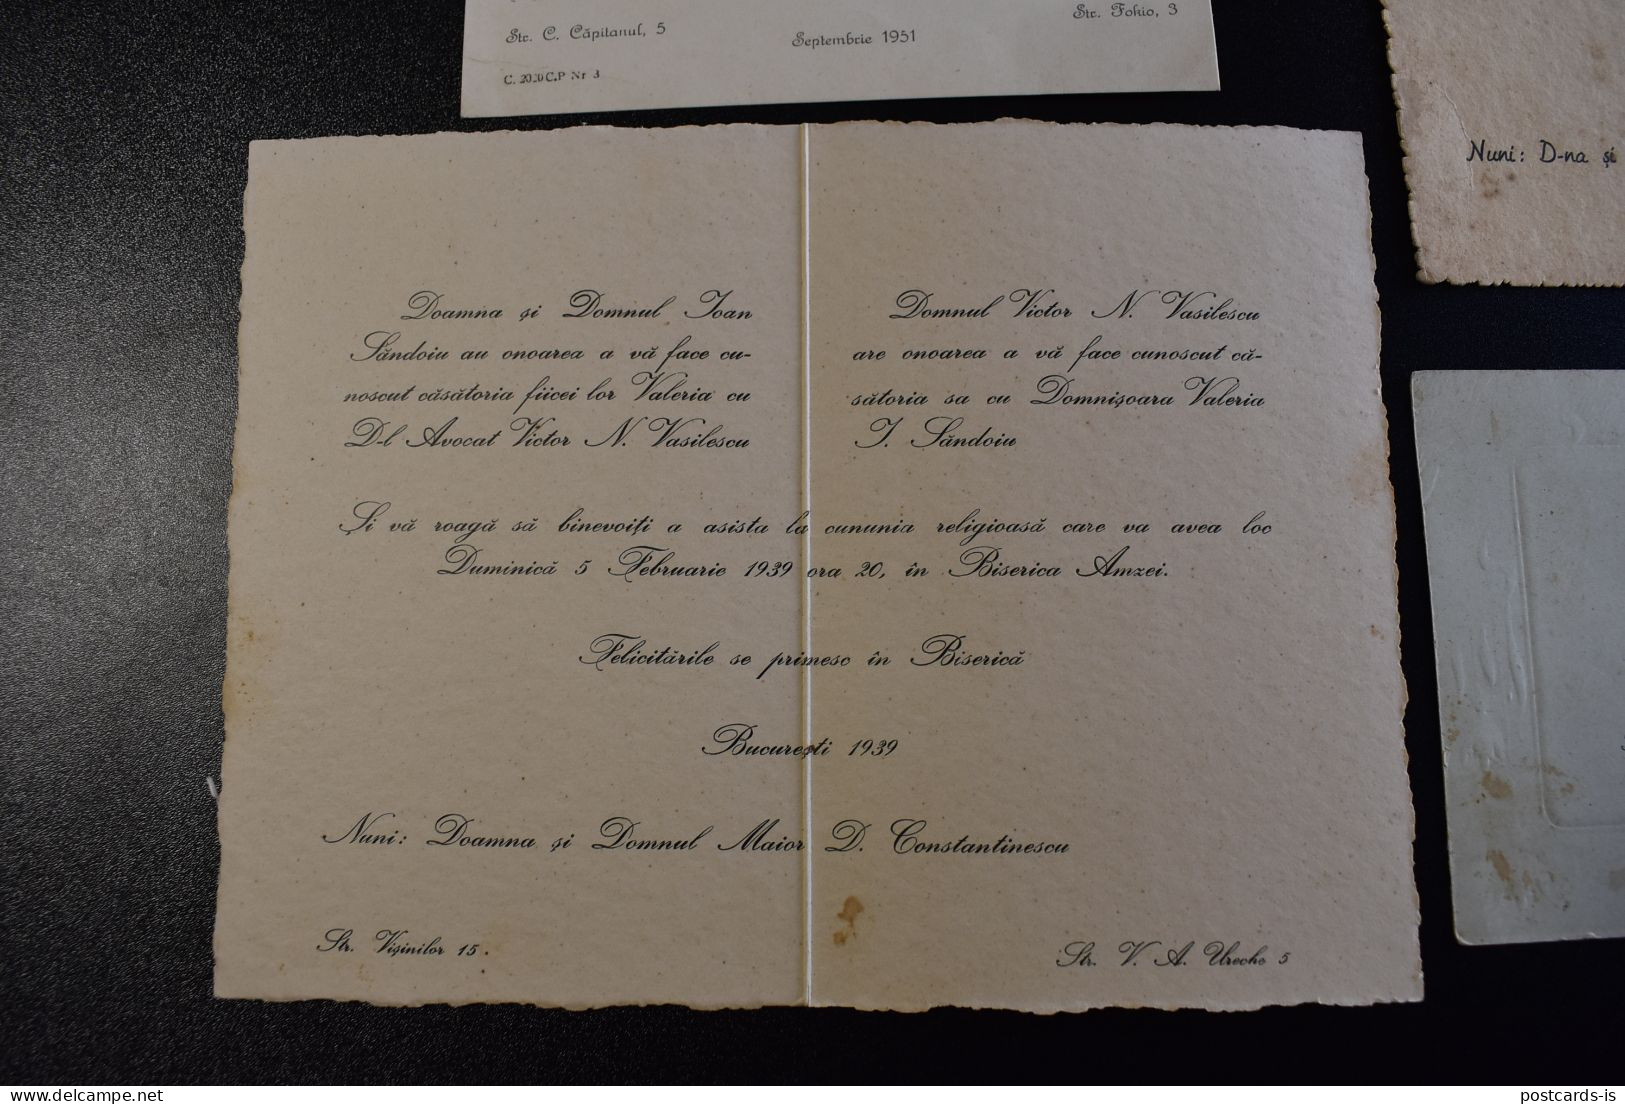 Str. C. Căpitanul, 5
Septembrie 1951
Str. Fokio, 3
C. 2020 C.P Nr 3
Nuni: D-na și
Doamna și Domnul Ioan
Săndoiu au onoarea a vă face cu-
noscut căsătoria fiicei lor Valeria cu
D-l Avocat Victor N. Vasilescu
Domnul Victor N. Vasilescu
are onoarea a vă face cunoscut că-
sătoria sa cu Domnișoara Valeria
I. Săndoiu
Și vă roagă să binevoiți a asista la cununia religioasă care va avea loc
Duminică 5 Februarie 1939 ora 20, în Biserica Amzei.
Felicitările se primesc în Biserică
București 1939
Nuni: Doamna și Domnul Maior D. Constantinescu
Str. Vișinilor 15.
Str. V. A. Ureche 5
delcampe.net
postcards-is